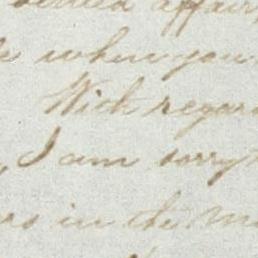 affair
when you
With regar
, I am sorry
in the m